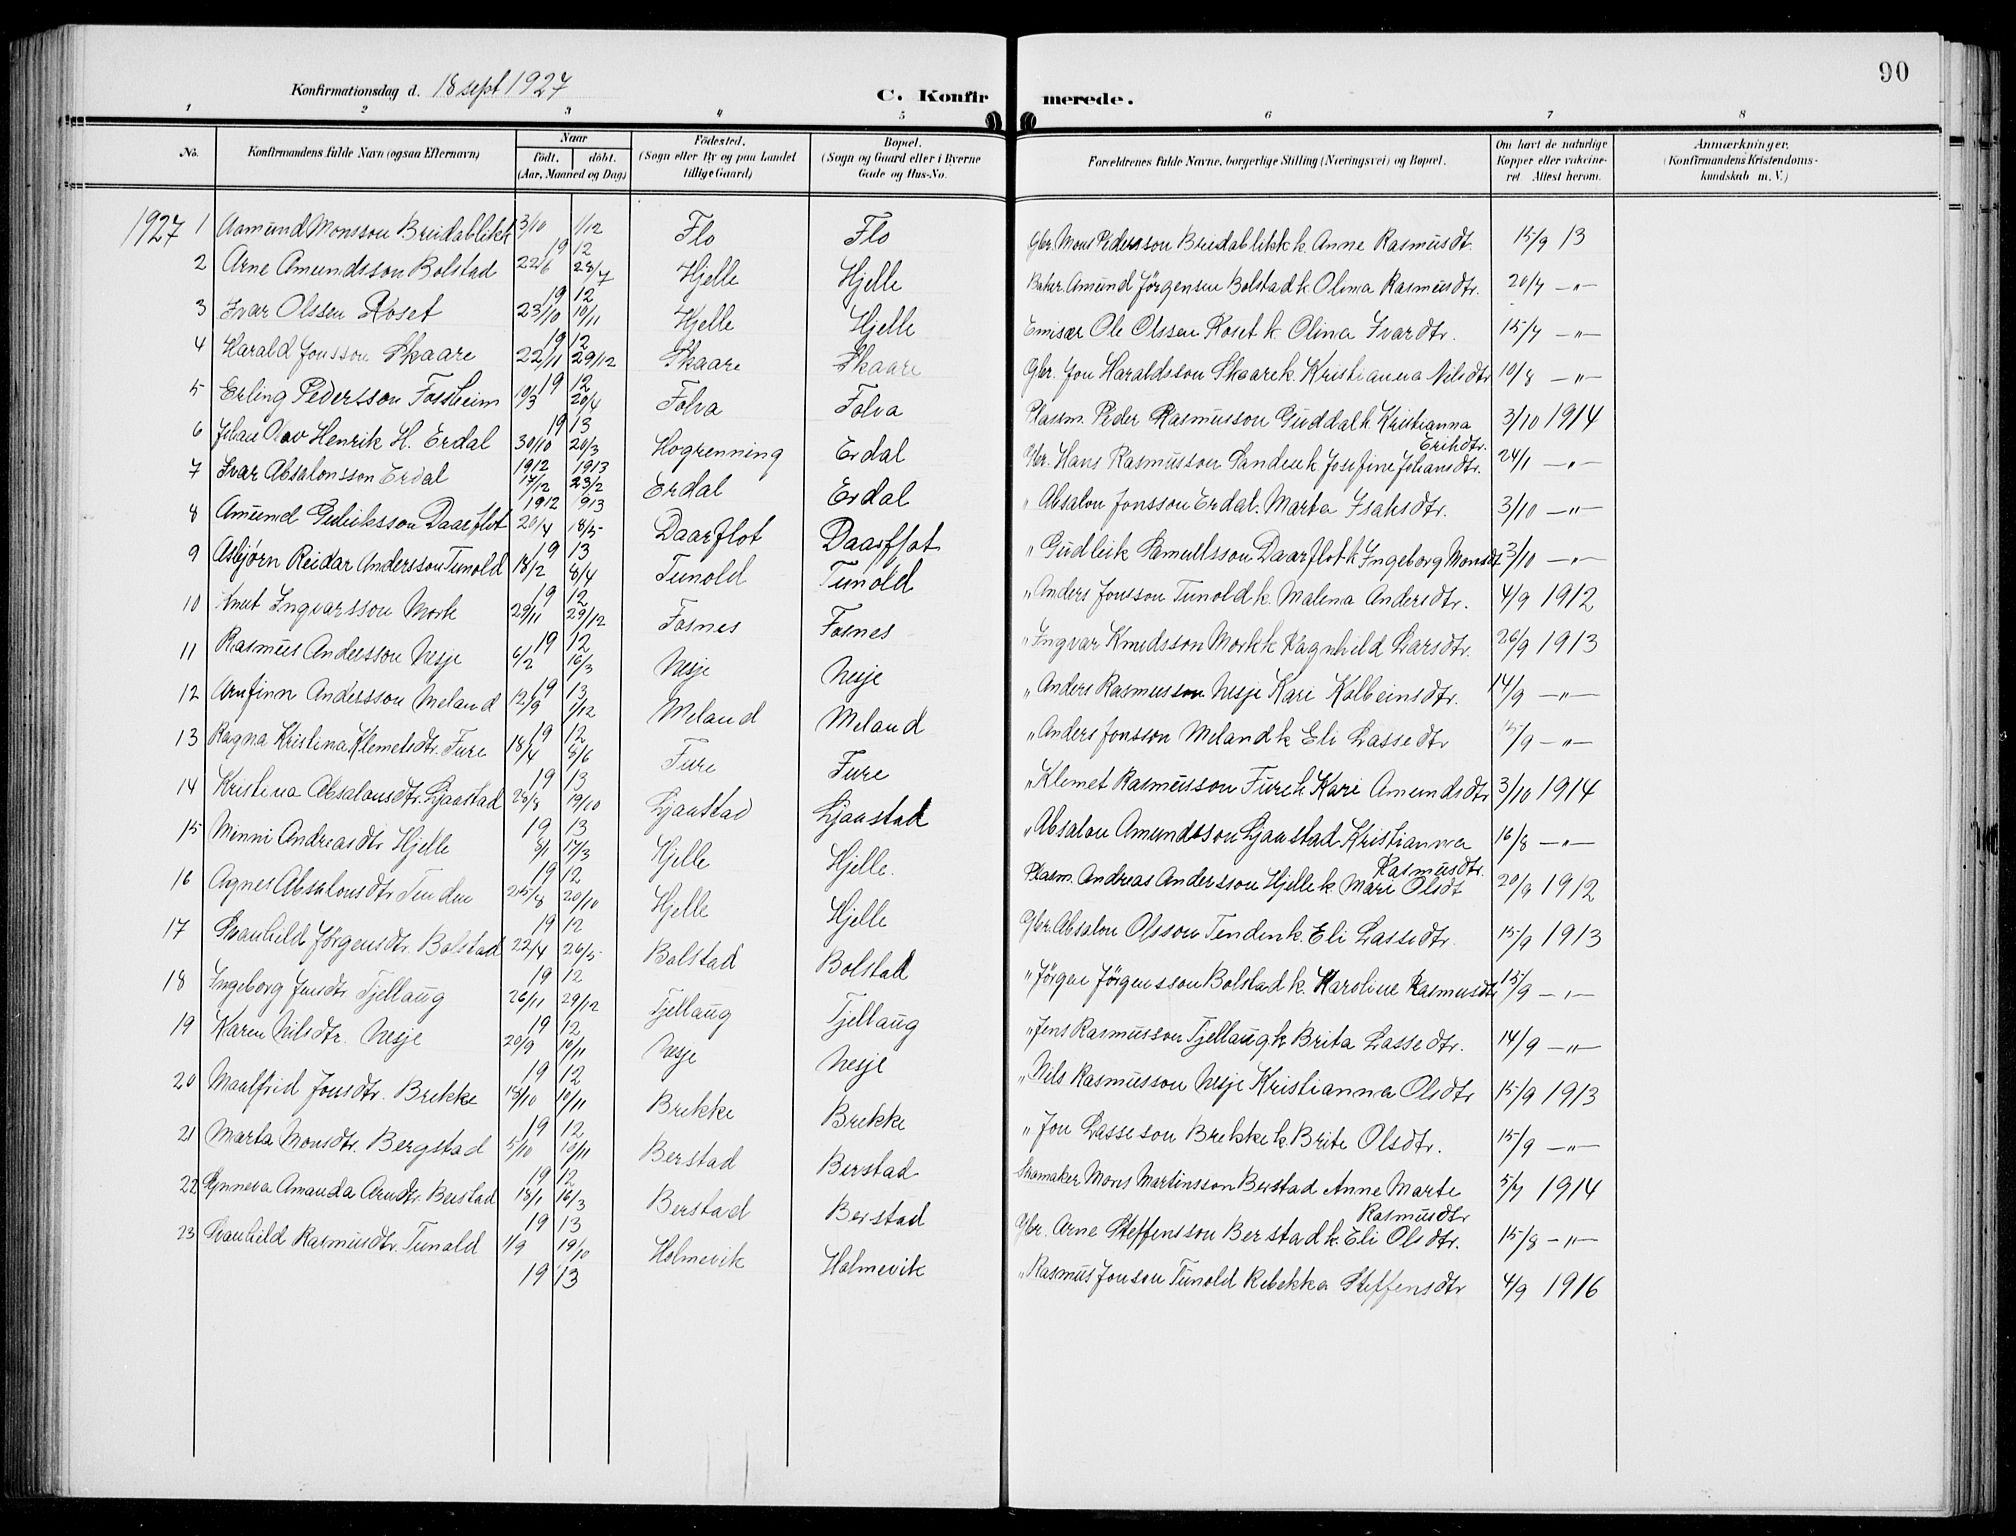 90
Konfirmationsdag d. 18 sept 1927
C. Konfirmerede.
1 2 3 4 5 6 7 8
No. Konfirmandens fulde Navn (ogsaa Efternavn) Naar födt. döbt. (Aar, Maaned og Dag) Födested. (Sogn eller By og paa Landet tillige Gaard) Bopæl. (Sogn og Gaard eller i Byerne Gade og Hus-No. Forældrenes fulde Navne, borgerlige Stilling (Næringsvei) og Bopæl. Om havt de naturlige Kopper eller vakcineret Attest herom. Anmærkninger. (Konfirmandens Kristendomskundskab m. V.)
1927 1 Aamund Monsson Breidablikk 3/10 1/12 19 12 Flo Flo Gbr. Mons Pedersson Breidablikk k. Anne Rasmusdt. 15/9 13
2 Arne Amundsson Bolstad 22/6 28/7 19 12 Hjelle Hjelle Baker Amund Jörgensen Bolstad k. Olina Rasmusdtr. 20/7 -"-
3 Ivar Olssen Roset 23/10 10/11 19 12 Hjelle Hjelle Emisær Ole Olssen Roset k. Olina Ivardtr. 15/7 -"-
4 Harald Jonsson Skaare 22/11 29/12 19 12 Skaare Skaare Gbr. Jon Haraldsson Skaare k. Kristianna Nilsdtr 10/8 -"-
5 Erling Pedersson Fossheim 10/3 20/4 19 13 Folva Folva Plasm. Peder Rasmusson Guddal k Kristianna Erikdtr. 3/10 1914
6 Johan Olav Henrik H. Erdal 30/10 20/3 1912 1913 Hogrenning Erdal Gbr. Hans Rasmusson Sanden k Josefine Johansdtr. 24/1 -"-
7 Ivar Absalonsson Erdal 17/12 23/2 1912 913 Erdal Erdal " Absalon Jonsson Erdal. Marta Isaksdtr. 3/10 -"-
8 Amund Gudleiksson Daarflot 20/4 18/5 19 13 Daarflot Daarflot " Gudleik Samuelsson Daarflot k Ingeborg Monsdt 3/10 -"-
9 Asbjørn Reidar Andersson Tunold 18/2 8/4 19 12 Tunold Tunold " Anders Jonsson Tunold k. Malena Andersdtr. 4/9 1912
10 Knut Ingvarsson Mork 29/11 29/12 19 12 Fosnes Fosnes " Ingvar Knudsson Mork k Ragnhild Larsdtr. 26/9 1913
11 Rasmus Andersson Nesje 6/2 16/3 19 13 Nesje Nesje " Anders Rasmusson Nesje Kari Kolbeinsdtr. 14/9 -"-
12 Arnfinn Andersson Meland 12/9 1/12 19 12 Meland Meland " Anders Jonsson Meland k Eli Lassedtr 15/9 -"-
13 Ragna Kristina Klemetsdtr. Fure 18/4 8/6 19 13 Fure Fure " Klemet Rasmusson Fure k Kari Amundsdtr 3/10 1914
14 Kristina Absalonsdtr. Ljaastad 25/8 19/10 19 13 Ljaastad Ljaastad " Absalon Amundsson Ljaastad Kristianna Rasmusdtr. 16/8 -"-
15 Minni Andreasdtr Hjelle 8/1 17/3 19 12 Hjelle Hjelle. Plasm. Andreas Andersson Hjelle k Mari Olsdt 20/9 1912
16 Agnes Absalonsdtr Tenden 25/8 20/10 19 12 Hjelle Hjelle Gbr. Absalon Olsson Tenden k. Eli Lassedtr. 15/9 1913
17 Svanhild Jørgensdtr. Bolstad 22/4 26/5 19 12 Bolstad Bolstad " Jørgen Jörgensson Bolstad k. Karoline Rasmusdtr 15/9 -"-
18 Ingeborg Jensdtr Tjellaug 26/11 29/12 19 12 Tjellaug Tjellaug " Jens Rasmusson Tjellaug k Brita Lassedtr. 14/9 -"-
19 Karen Nilsdtr. Nesje 20/9 10/11 19 12 Nesje Nesje " Nils Rasmusson Nesje Kristianna Olsdtr 15/9 1913
20 Maalfrid Jonsdtr. Brekke 13/10 10/11 19 12 Brekke Brekke " Jon Lasseson Brekke k. Brite Olsdtr. 15/9 -"-
21 Marta Monsdtr. Bergstad 5/10 10/11 19 12 Berstad Berstad Skomaker Mons Martinsson Berstad Anne Marte Rasmusdtr 5/7 1914
22 Synneva Amanda Arnedtr. Berstad 18/1 16/3 19 13 Berstad Berstad Gbr. Arne Steffensson Berstad k. Eli Olsdtr. 15/8 -"-
23 Svanhild Rasmusdtr. Tunold 1/9 19/10 19 13 Holmevik Holmevik " Rasmus Jonson Tunold Rebekka Steffensdtr 4/9 1916